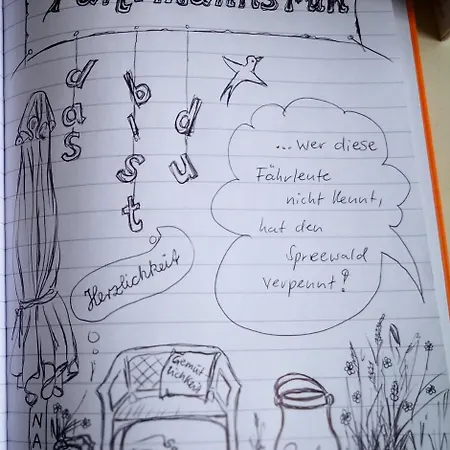 das
bist
du
... wer diese
Fährleute
nicht kennt,
hat den
Spreewald
verpennt!
Herzlichkeit
Gemüt-
lichkeit
NA